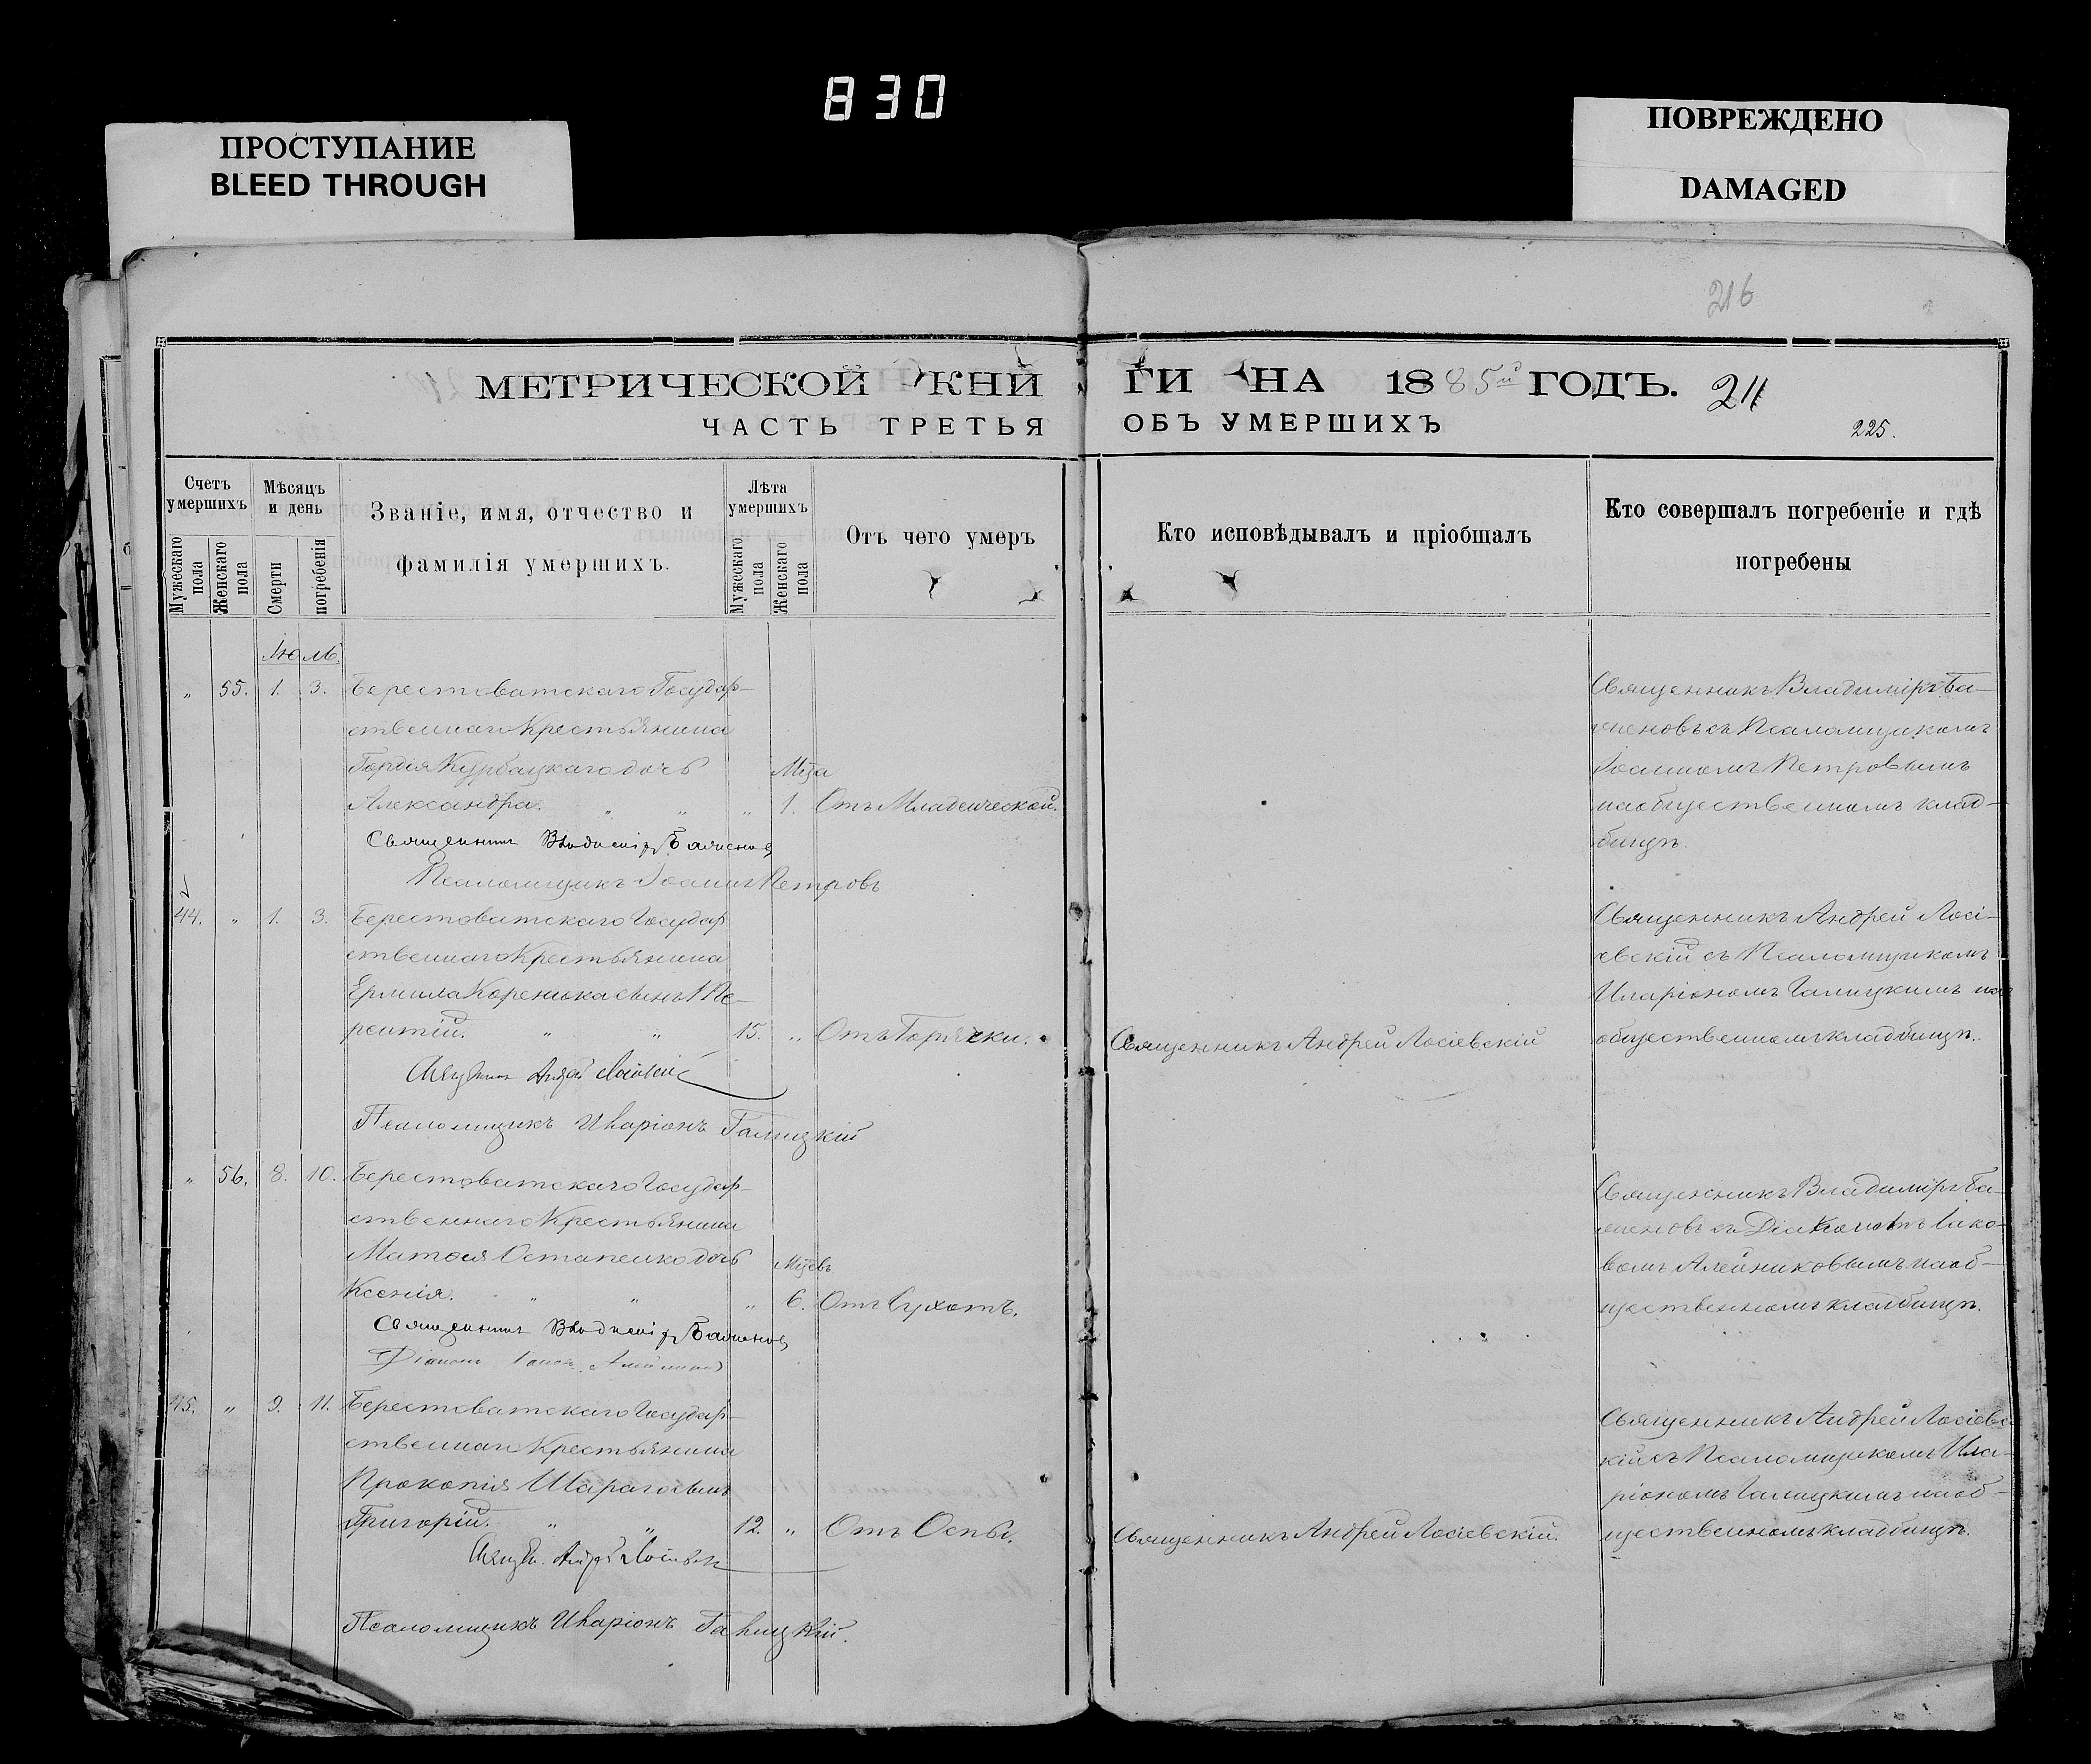 830
ПРОСТУПАНИЕ
BLEED THROUGH
ПОВРЕЖДЕНО
DAMAGED
216
МЕТРИЧЕСКОЙ КНИ
ГИ НА 1885й ГОДЪ.
225.
ЧАСТЬ ТРЕТЬЯ
ОБЪ УМЕРШИХЪ
Счетъ умершихъ
Мужескаго пола
Женскаго пола
Мѣсяцъ и день
Смерти
погребенія
Званіе, имя, отчество и
фамилія умершихъ.
Лѣта умершихъ
Мужескаго пола
Женскаго пола
Отъ чего умеръ
Кто исповѣдывалъ и пріобщалъ
Кто совершалъ погребеніе и гдѣ
погребены
Іюль.
„ 55. 1. 3. Берестоватскаго Государ-
ственнаго Крестьянина
Гордія Курбацкаго дочь
Александра. „ „ „ 1. Отъ Младенческой.
Священникъ Владиміръ
Псаломщикъ Іоаннъ Петровъ
Священникъ Владиміръ Ба-
женовъ съ Псаломщикомъ
Іоанномъ Петровымъ
на общественномъ клад-
бищѣ.
44. „ 1. 3. Берестоватскаго Государ
ственнаго Крестьянина
Ермила сынъ
15. „ Отъ Горячки.
Священникъ Андрей Лосіевскій
Псаломщикъ Иларіонъ Галицкій
Священникъ Андрей Лосіевскій
Священникъ Андрей Лосі-
евскій съ Псаломщикомъ
Иларіономъ Галицкимъ на
общественномъ кладбищѣ.
„ 56. 8. 10. Берестоватскаго Государ-
ственнаго Крестьянина
Матвея Остапенко дочь
Ксенія. „ „ „ 6. Отъ Сухотъ.
Священникъ Владиміръ
Діаконъ
Священникъ Владиміръ Ба-
женовъ съ Діакономъ Іако-
вомъ Алейниковымъ на об-
щественномъ кладбищѣ.
45. „ 9. 11. Берестоватскаго Государ-
ственнаго Крестьянина
Прокопія сынъ
Григорій. „ „ 12. „ Отъ Оспы.
Андрей
Псаломщикъ Иларіонъ Галицкій.
Священникъ Андрей Лосіевскій.
Священникъ Андрей Лосіевс
кій съ Псаломщикомъ Ила-
ріономъ Галицкимъ на об-
щественномъ кладбищѣ.